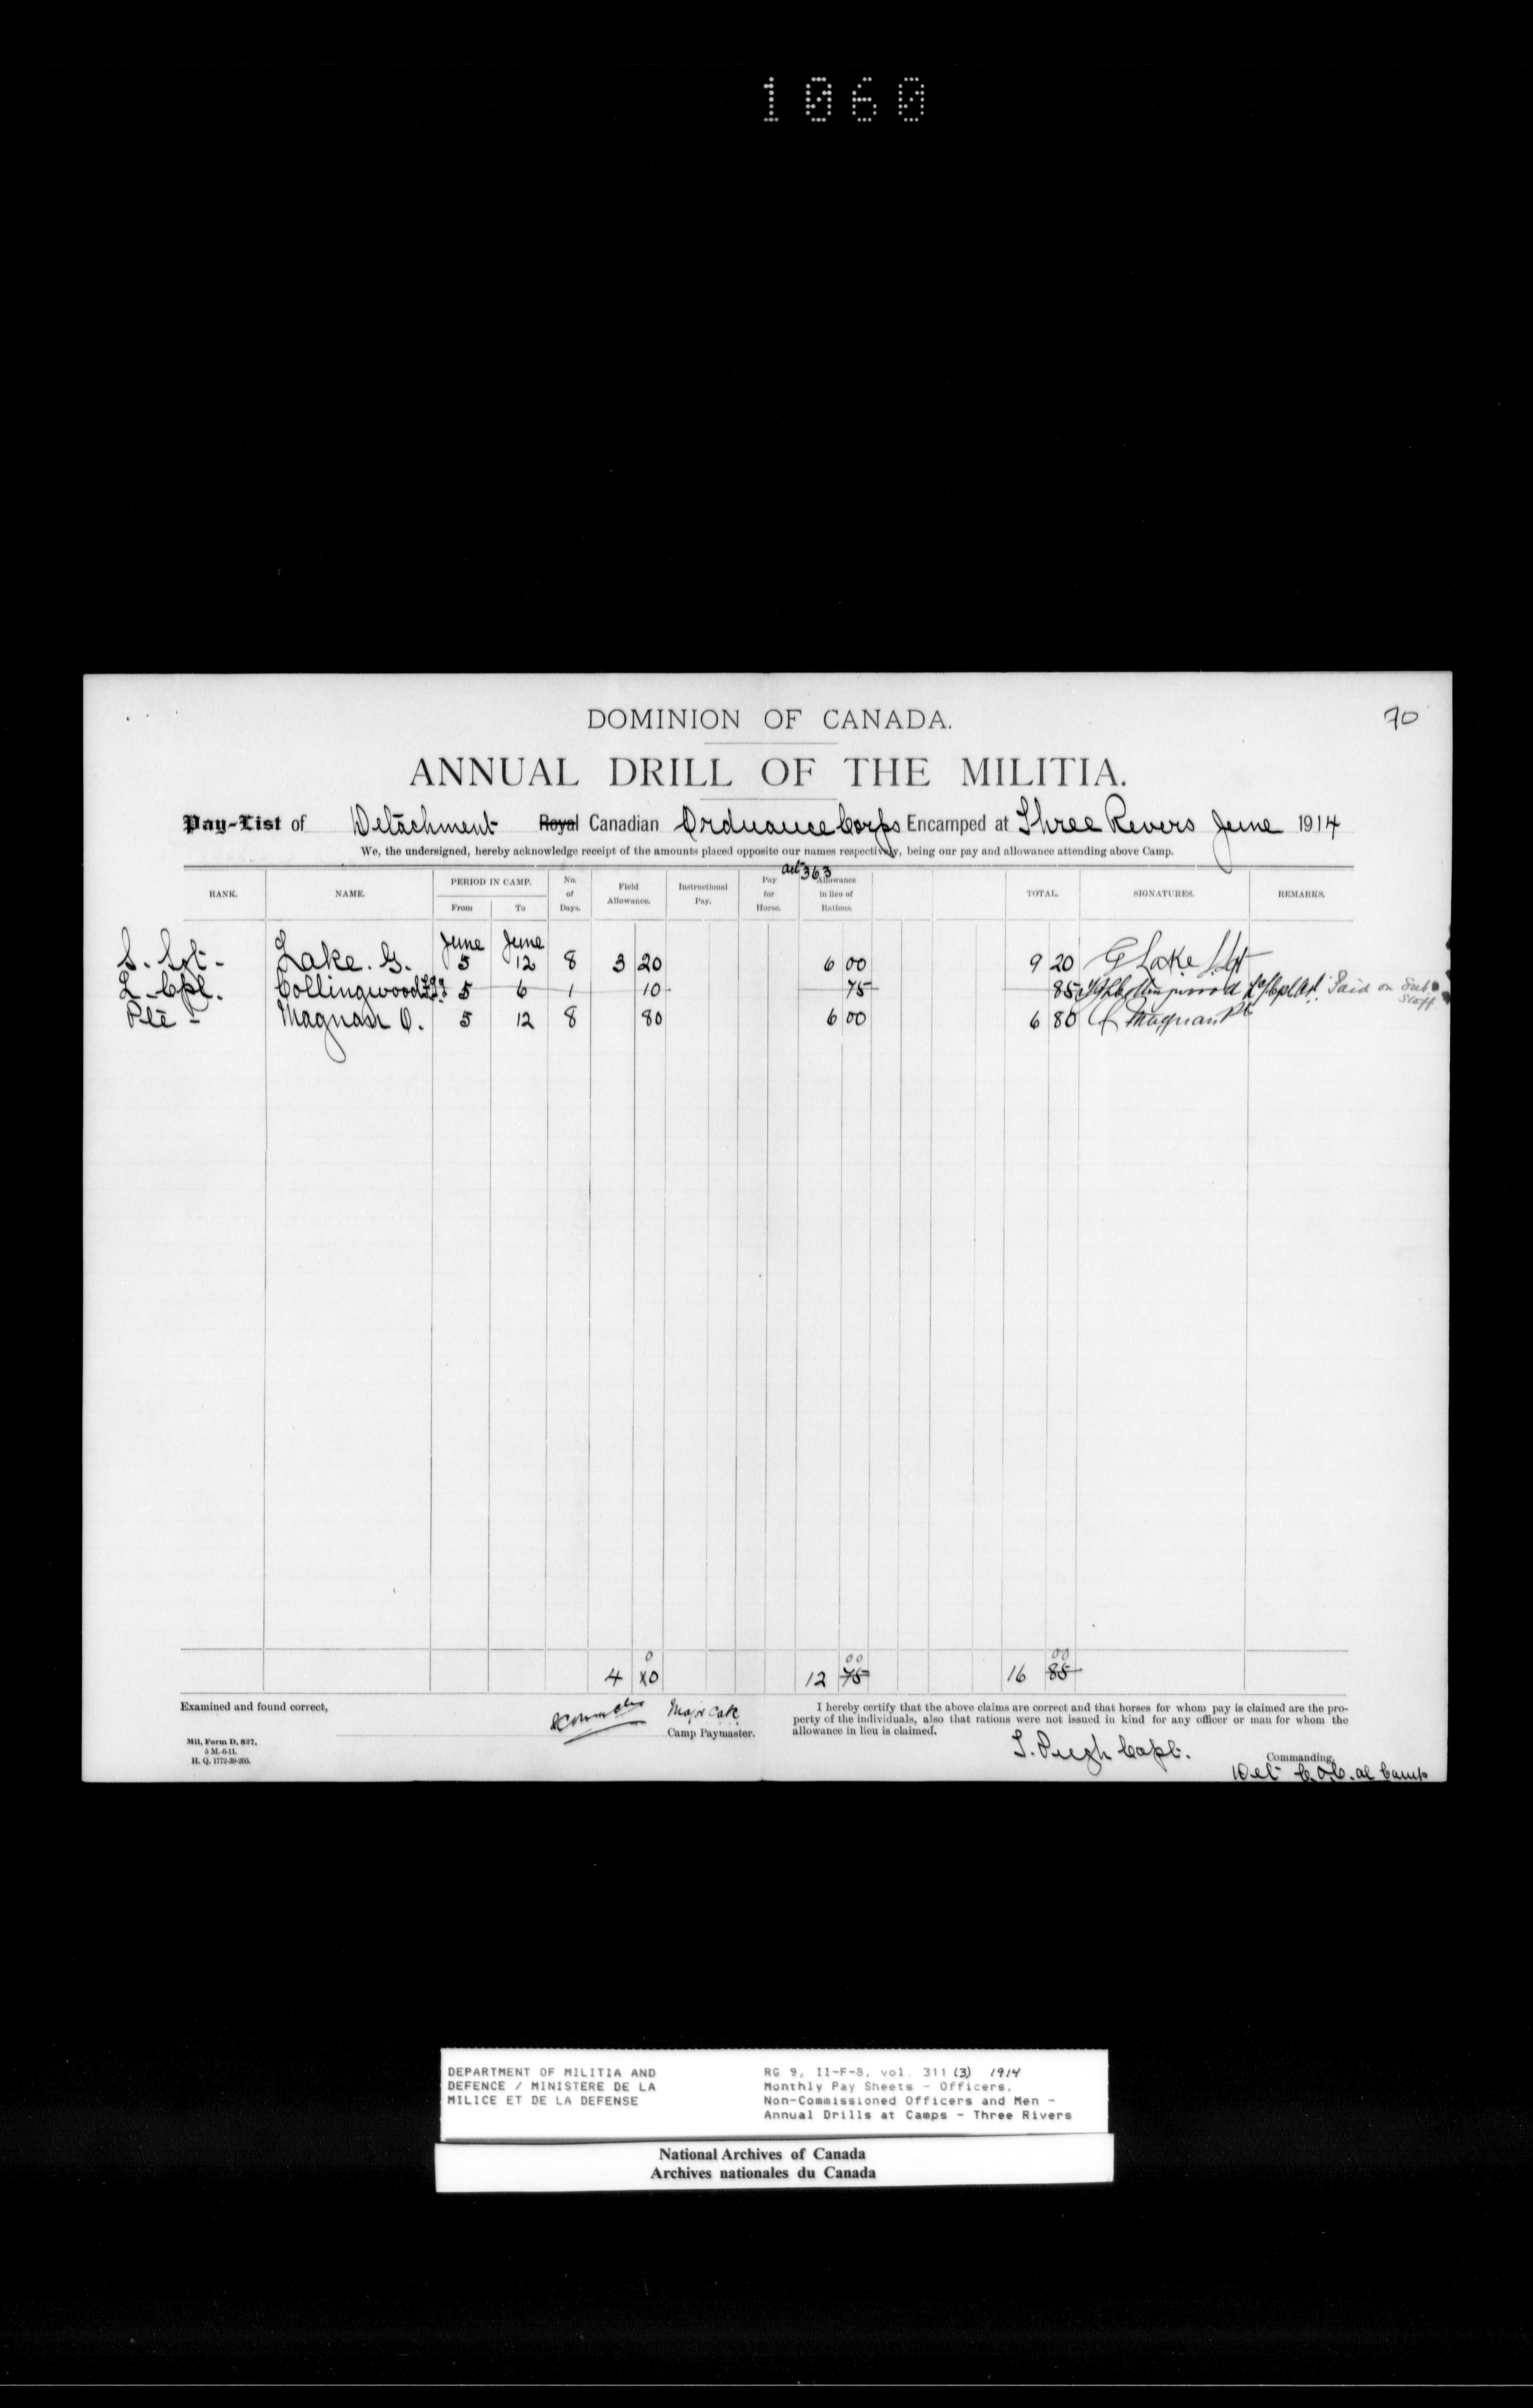 1060
70
DOMINION OF CANADA.
ANNUAL DRILL OF THE MILITIA.
Pay-List of Detachment Royal Canadian Ordnance Corps Encamped at Three Rivers June 1914
We, the undersigned, hereby acknowledge receipt of the amounts placed opposite our names respectively, being our pay and allowance attending above Camp.
Art 363
RANK. NAME. PERIOD IN CAMP. From To No. of Days. Field Allowance. Instructional Pay. Pay for Horse. Allowance in lieu of Rations. TOTAL. SIGNATURES. REMARKS.
June June
S. Sgt - Lake. G. 5 12 8 3 20 6 00 9 20 G Lake S.Sgt
L-Cpl. Collingwood 5 6 1 10 75 85 Collingwood Paid on Sub Staff
Pte - Magnan O. 5 12 8 80 6 00 6 80 Magnan Pt
0 00 00
4 10 12 75 16 85
Examined and found correct,
Major
Camp Paymaster.
I hereby certify that the above claims are correct and that horses for whom pay is claimed are the pro-
perty of the individuals, also that rations were not issued in kind for any officer or man for whom the
allowance in lieu is claimed.
Pugh Capt.
Commanding,
Det C.O.C. at Camp
Mil. Form D. 827.
5 M.-6-11.
H. Q. 1772-39-205.
DEPARTMENT OF MILITIA AND
DEFENCE / MINISTERE DE LA
MILICE ET DE LA DEFENSE
RG 9, II-F-8, vol. 311 (3) 1914
Monthly Pay Sheets - Officers,
Non-Commissioned Officers and Men -
Annual Drills at Camps - Three Rivers
National Archives of Canada
Archives nationales du Canada